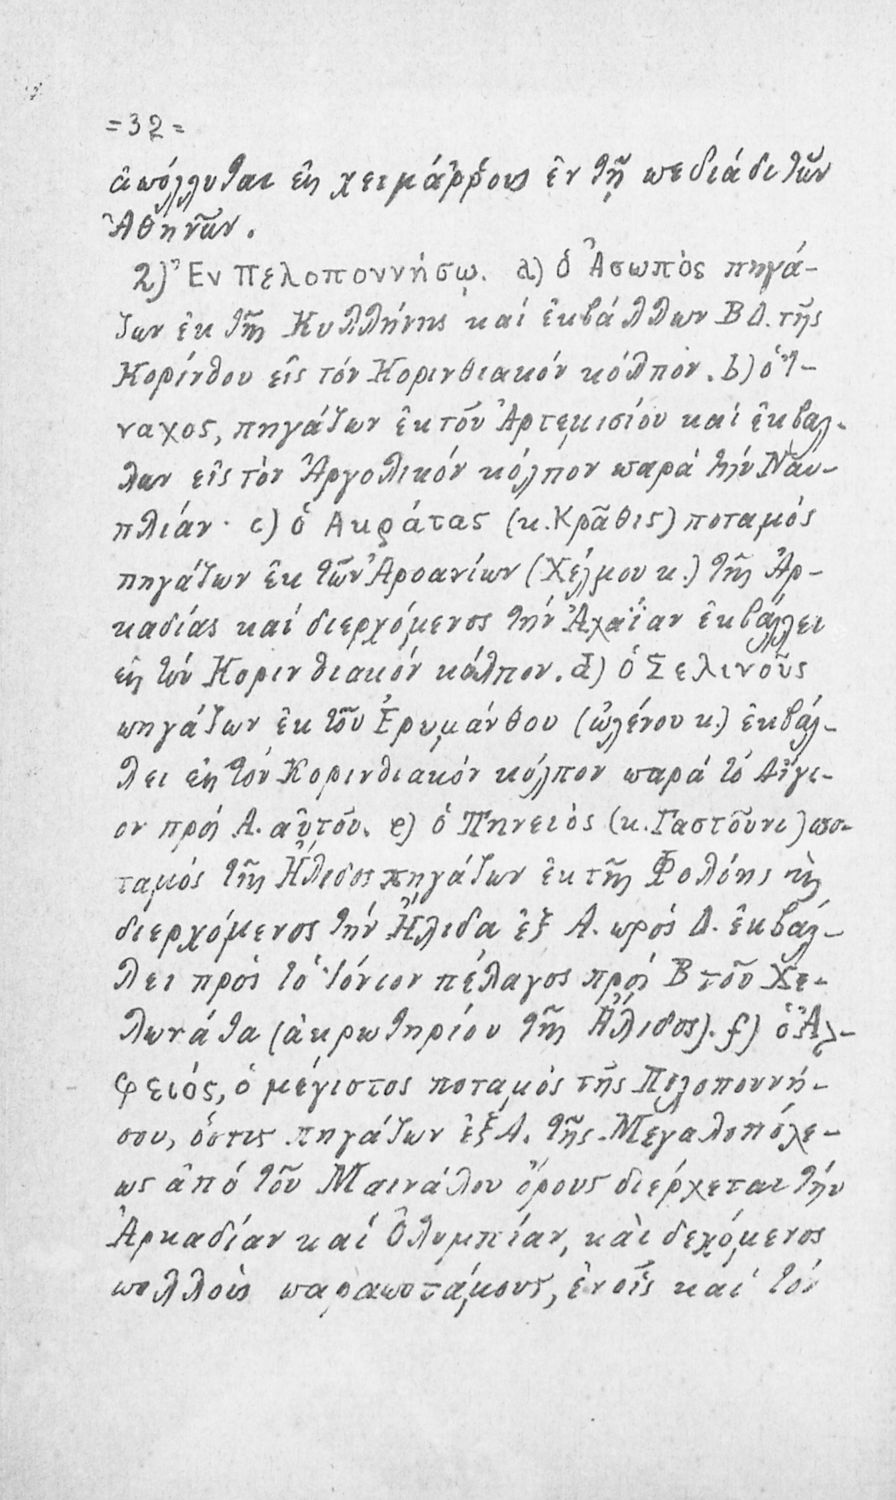 =32=
ἀπόλλυται εἰς χειμάῤῥους ἐν τῇ πεδιάδι τῶν
Ἀθηνῶν.
2) Ἐν Πελοποννήσῳ. a) ὁ Ἀσωπὸς πηγά-
ζων ἐκ τῆς Κυλλήνης καί ἐκβάλλων ΒΔ. τῆς
Κορίνθου εἰς τόν Κορινθιακόν κόλπον. b) ὁ Ἴ-
ναχος, πηγάζων ἐκ τοῦ Ἀρτεμισίου καί ἐκβαλ-
λων εἰς τὸν Ἀργολικόν κόλπον παρά τήν Ναυ-
πλιάν· c) ὁ Ακράτας (κ. Κρᾶθις) ποταμός
πηγάζων ἐκ τῶν Ἀροανίων (Χέλμου κ.) τῆς Ἀρ-
καδίας καί διερχόμενος τήν Ἀχαΐαν ἐκβάλλει
εἰς τόν Κορινθιακόν κόλπον. d) ὁ Σελινοῦς
πηγάζων ἐκ τοῦ Ἐρυμάνθου (ὠλένου κ.) ἐκβάλ-
λει εἰς τόν Κορινθιακόν κόλπον παρά τό Αἴγι-
ον πρός Α. αὐτοῦ. e) ὁ Πηνειὸς (κ. Γαστοῦνι) πο-
ταμός τῆς Ἤλιδος πηγάζων ἐκ τῆς Φολόης κὴ
διερχόμενος τήν Ἤλιδα ἐξ Α. πρός Δ. ἐκβάλ-
λει πρός τό Ἰόνιον πέλαγος πρός Β τοῦ Χε-
λωνάτα (ἀκρωτηρίου τῆς Ἤλιδος). f) ὁ Ἀλ-
φειός, ὁ μέγιστος ποταμὸς τῆς Πελοποννή-
σου, ὅστις πηγάζων ἐξ Α. τῆς Μεγαλοπόλε-
ως ἀπό τοῦ Μαινάλου ὄρους διέρχεται τήν
Ἀρκαδίαν καί Ὀλυμπίαν, καὶ δεχόμενος
πολλούς παραποτάμους, ἐν οἷς καί τόν